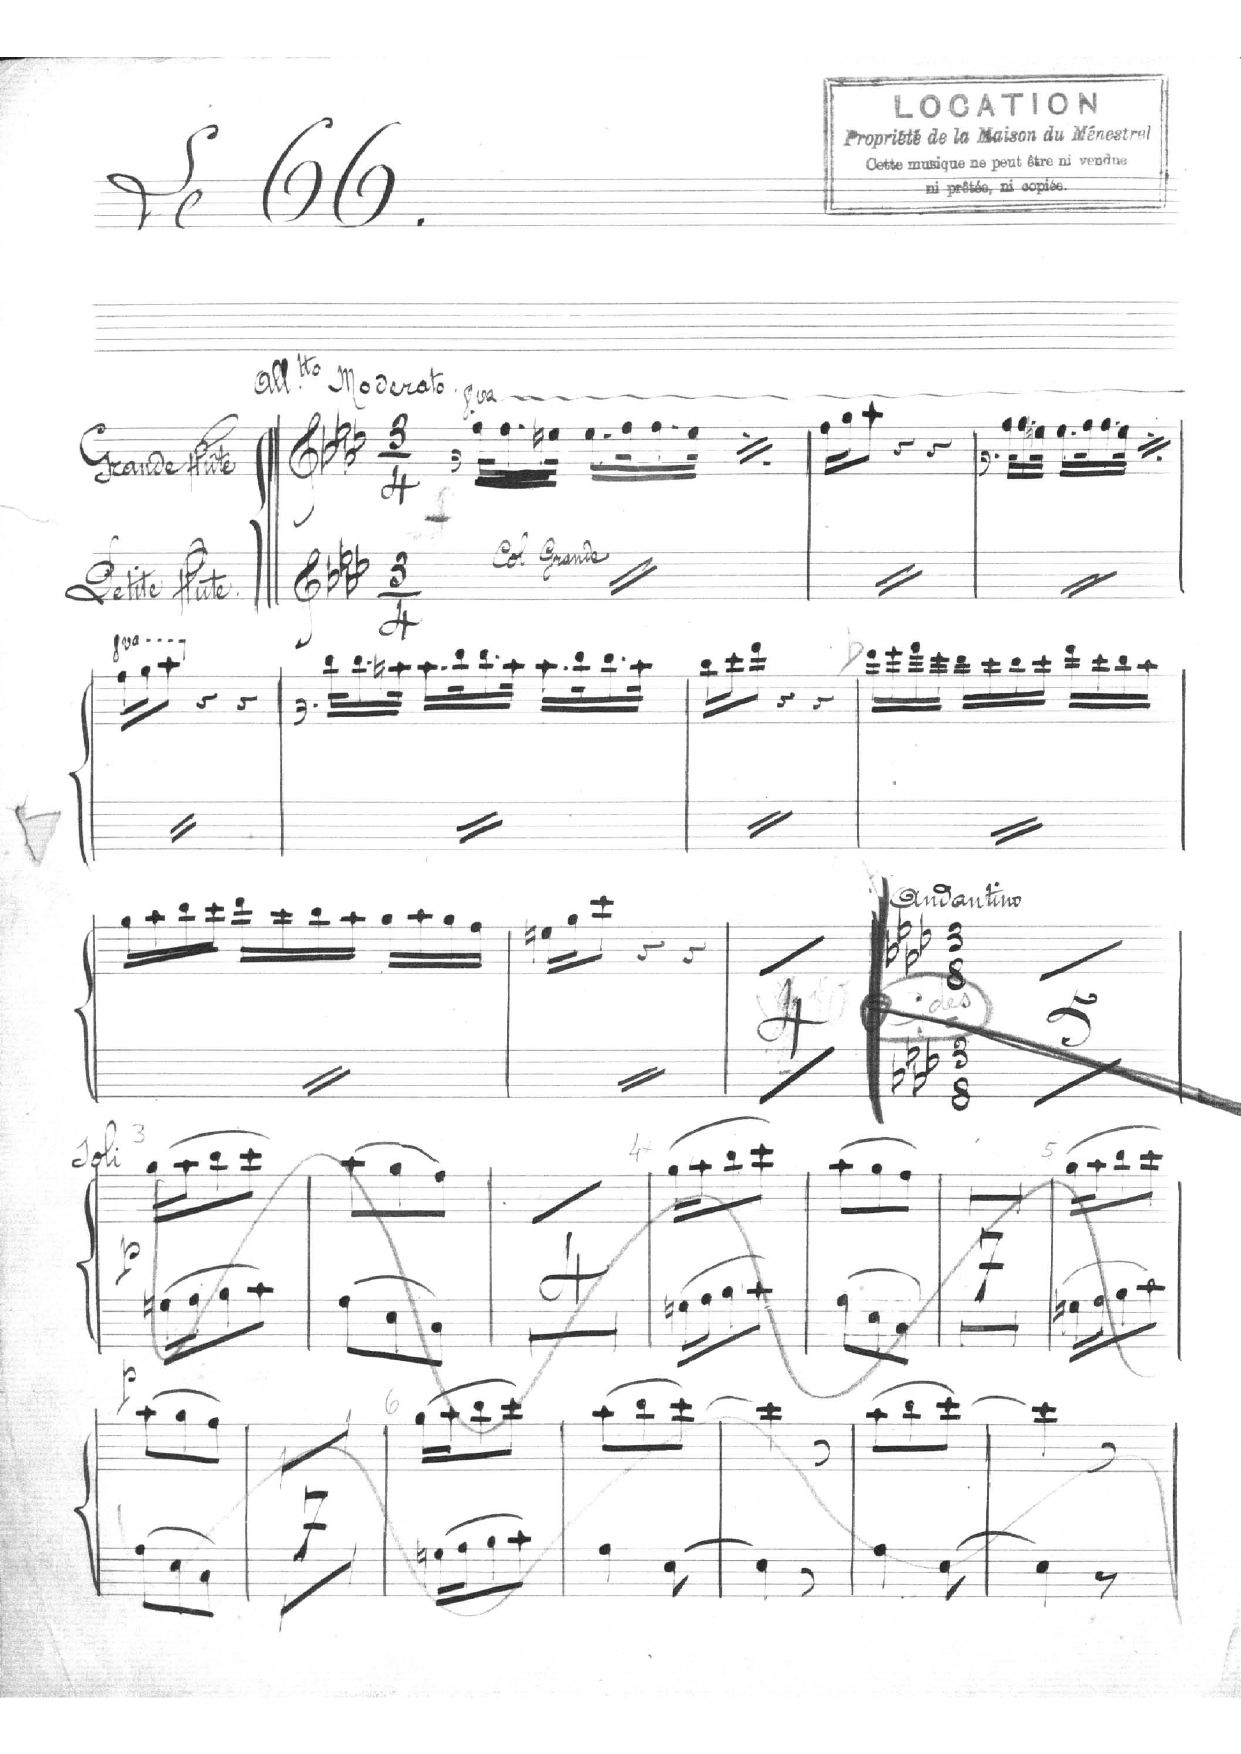 LOCATION
Propriété de la Maison du Ménestrel
Cette musique ne peut être ni vendue
ni prêtée, ni copiée.
Le 66.
All.tto Moderato. 8va
Grande flûte
3
4
Petite flûte.
3
4
Col Grande
8va
Andantino
3
8
4
des
5
3
8
Soli 3
4
5
p
4
7
p
6
7